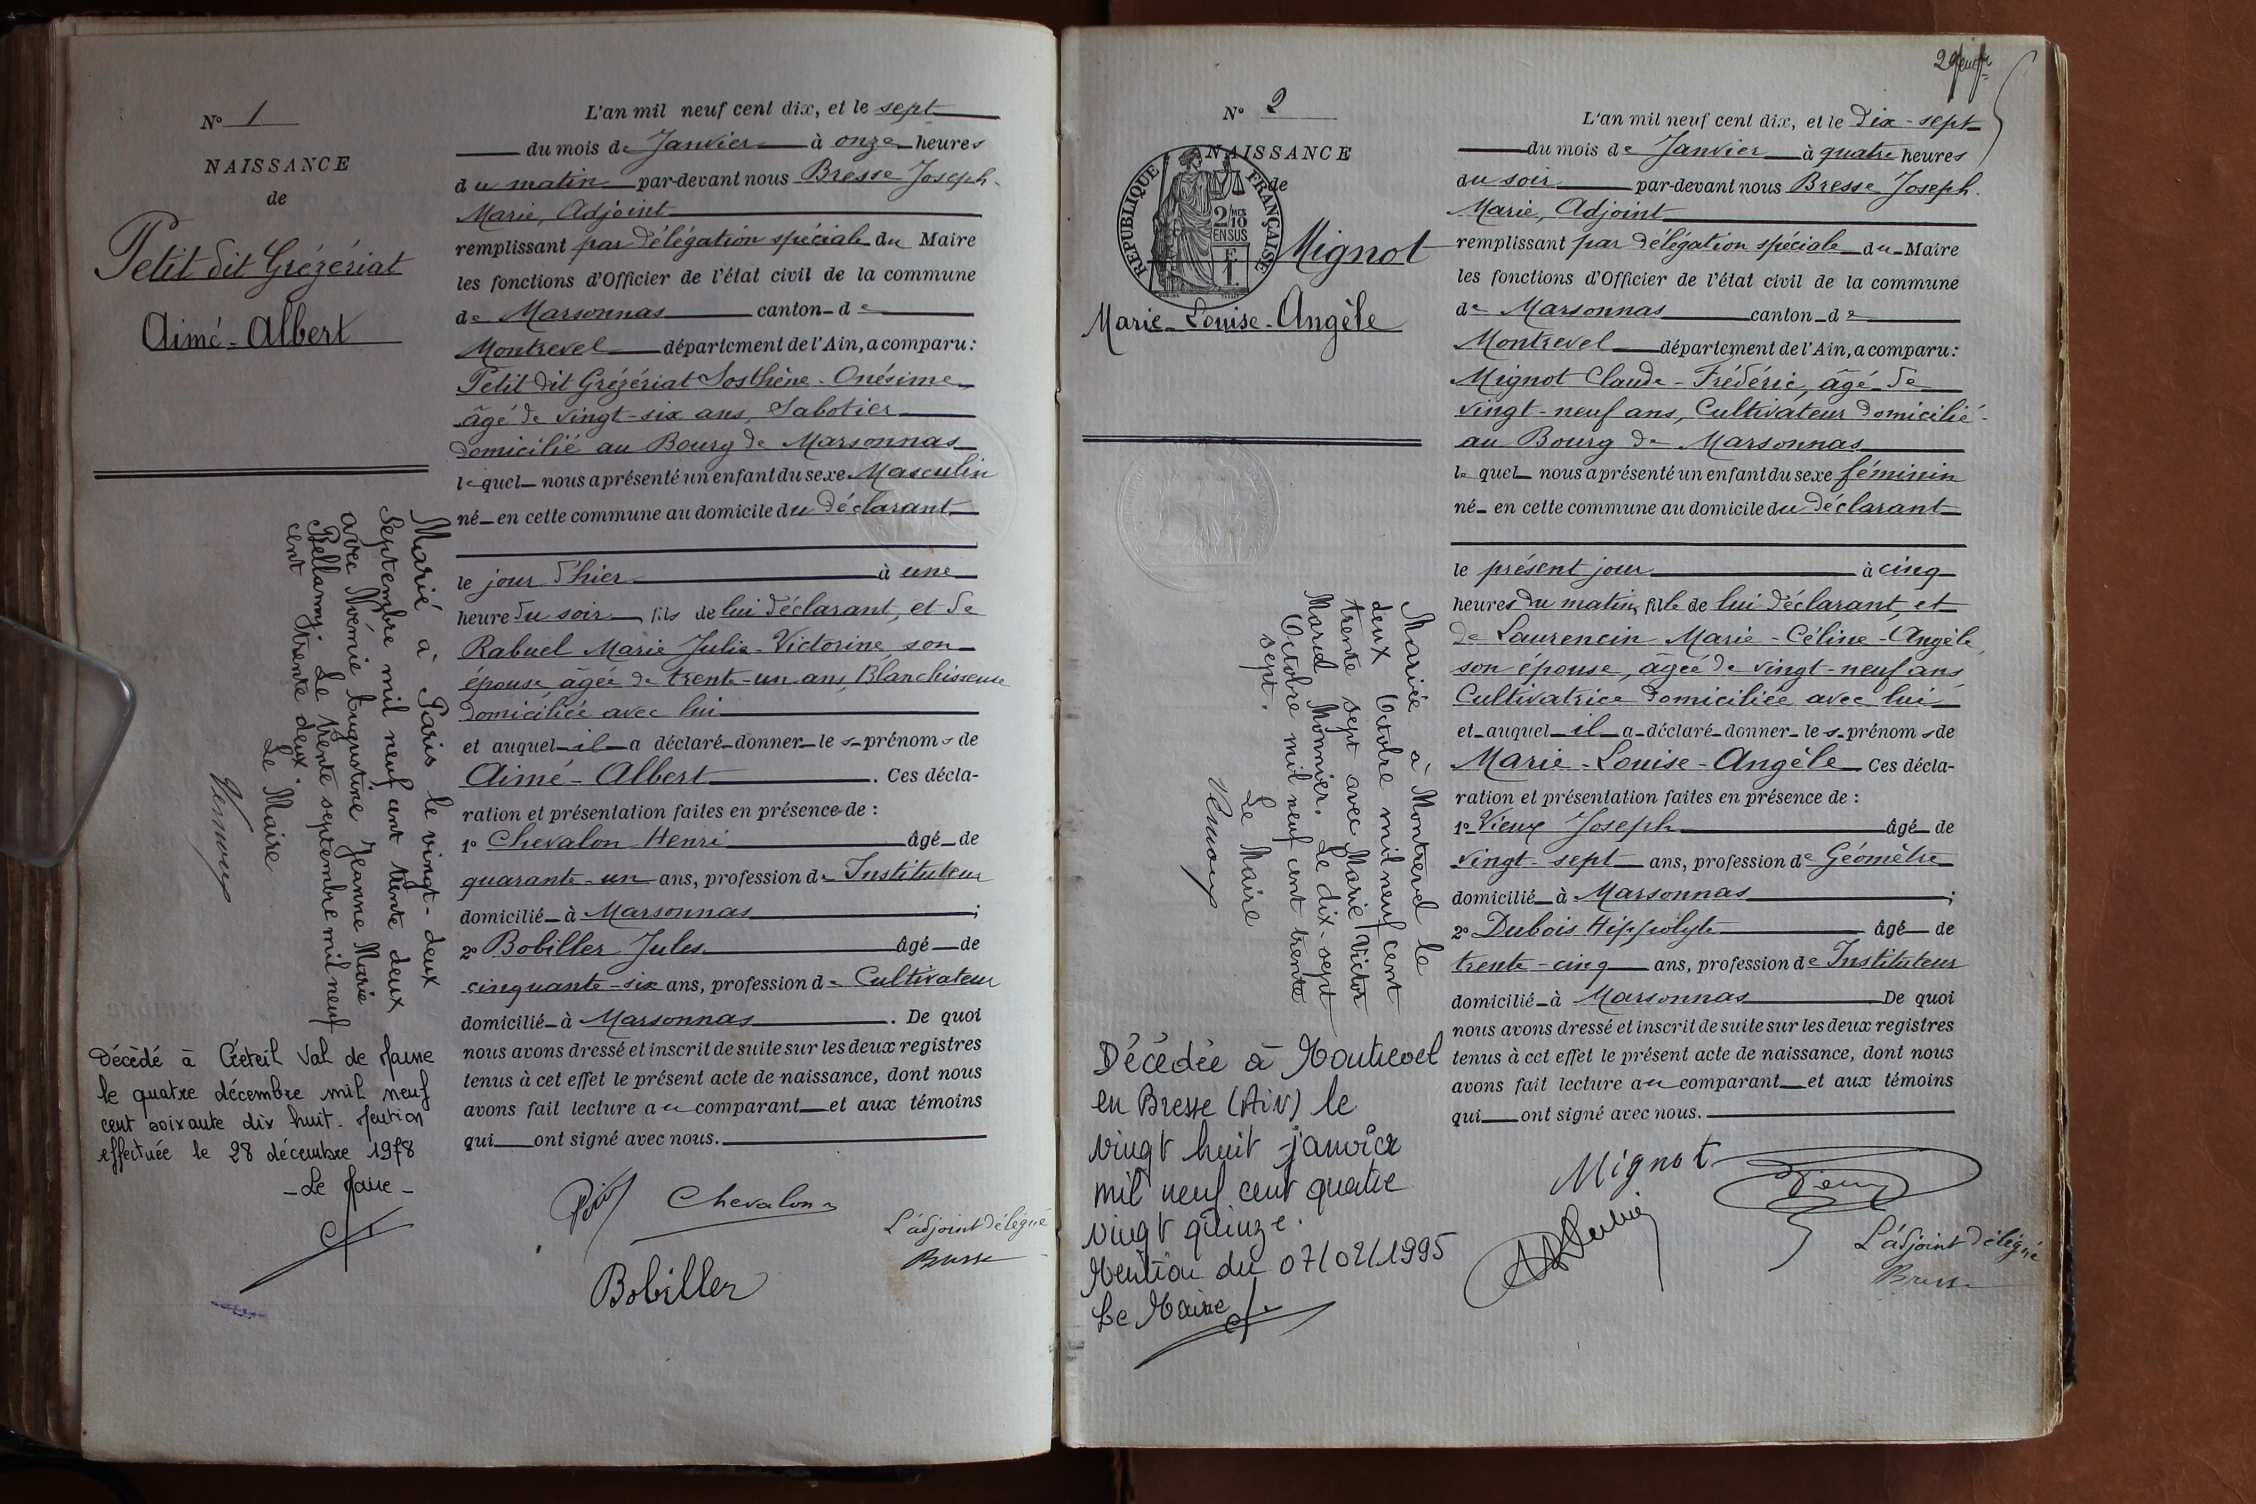 N° 1
NAISSANCE
de
Petit dit Grézériat
Aimé-Albert
L'an mil neuf cent dix, et le sept
du mois de Janvier à onze heures
du matin par-devant nous Bresse Joseph-
Marie, Adjoint
remplissant par délégation spéciale du Maire
les fonctions d'Officier de l'état civil de la commune
de Marsonnas canton de
Montrevel département de l'Ain, a comparu :
Petit dit Grézériat Sosthène-Onésime
âgé de vingt-six ans, Sabotier
domicilié au Bourg de Marsonnas
lequel nous a présenté un enfant du sexe Masculin
né en cette commune au domicile du déclarant
le jour d'hier à une
heure du soir fils de lui déclarant, et de
Rabuel Marie Julie-Victorine, son
épouse âgée de trente-un ans, Blanchisseuse
domiciliée avec lui
et auquel il a déclaré donner les prénoms de
Aimé-Albert. Ces décla-
ration et présentation faites en présence de :
1° Chevalon Henri âgé de
quarante-un ans, profession de Instituteur
domicilié à Marsonnas ;
2° Bobiller Jules âgé de
cinquante-six ans, profession de Cultivateur
domicilié à Marsonnas. De quoi
nous avons dressé et inscrit de suite sur les deux registres
tenus à cet effet le présent acte de naissance, dont nous
avons fait lecture au comparant et aux témoins
qui ont signé avec nous.
Chevalon
Bobiller
L'adjoint délégué
Bresse
Marié à Paris le vingt-deux
Septembre mil neuf cent trente deux
avec Noémie Augustine Jeanne Marie
Bellamy. Le trente septembre mil neuf
cent trente deux.
Le Maire
Décédé à Créteil Val de Marne
le quatre décembre mil neuf
cent soixante dix huit. Mention
effectuée le 28 décembre 1978
- Le Maire -
N° 2
NAISSANCE
de
RÉPUBLIQUE FRANÇAISE
2/10
EN SUS
Mignot
Marie-Louise-Angèle
L'an mil neuf cent dix, et le dix-sept
du mois de Janvier à quatre heures
du soir par-devant nous Bresse Joseph-
Marie, Adjoint
remplissant par délégation spéciale du Maire
les fonctions d'Officier de l'état civil de la commune
de Marsonnas canton de
Montrevel département de l'Ain, a comparu :
Mignot Claude-Frédéric, âgé de
vingt-neuf ans, Cultivateur domicilié
au Bourg de Marsonnas
lequel nous a présenté un enfant du sexe féminin
né en cette commune au domicile du déclarant
le présent jour à cinq
heures du matin, fille de lui déclarant, et
de Laurencin Marie-Céline-Angèle,
son épouse, âgée de vingt-neuf ans,
Cultivatrice domiciliée avec lui
et auquel il a déclaré donner les prénoms de
Marie-Louise-Angèle Ces décla-
ration et présentation faites en présence de :
1° Vieux Joseph âgé de
vingt-sept ans, profession de Géomètre
domicilié à Marsonnas ;
2° Dubois Hippolyte âgé de
trente-cinq ans, profession de Instituteur
domicilié à Marsonnas De quoi
nous avons dressé et inscrit de suite sur les deux registres
tenus à cet effet le présent acte de naissance, dont nous
avons fait lecture au comparant et aux témoins
qui ont signé avec nous.
Mignot
L'adjoint délégué
Bresse
Mariée à Montrevel le
deux Octobre mil neuf cent
trente sept avec Marie Victor
Marcel Monnier. Le dix-sept
Octobre mil neuf cent trente
sept.
Le Maire
Décédée à Montrevel
en Bresse (Ain) le
vingt huit janvier
mil neuf cent quatre
vingt quinze.
Mention du 07/02/1995
Le Maire